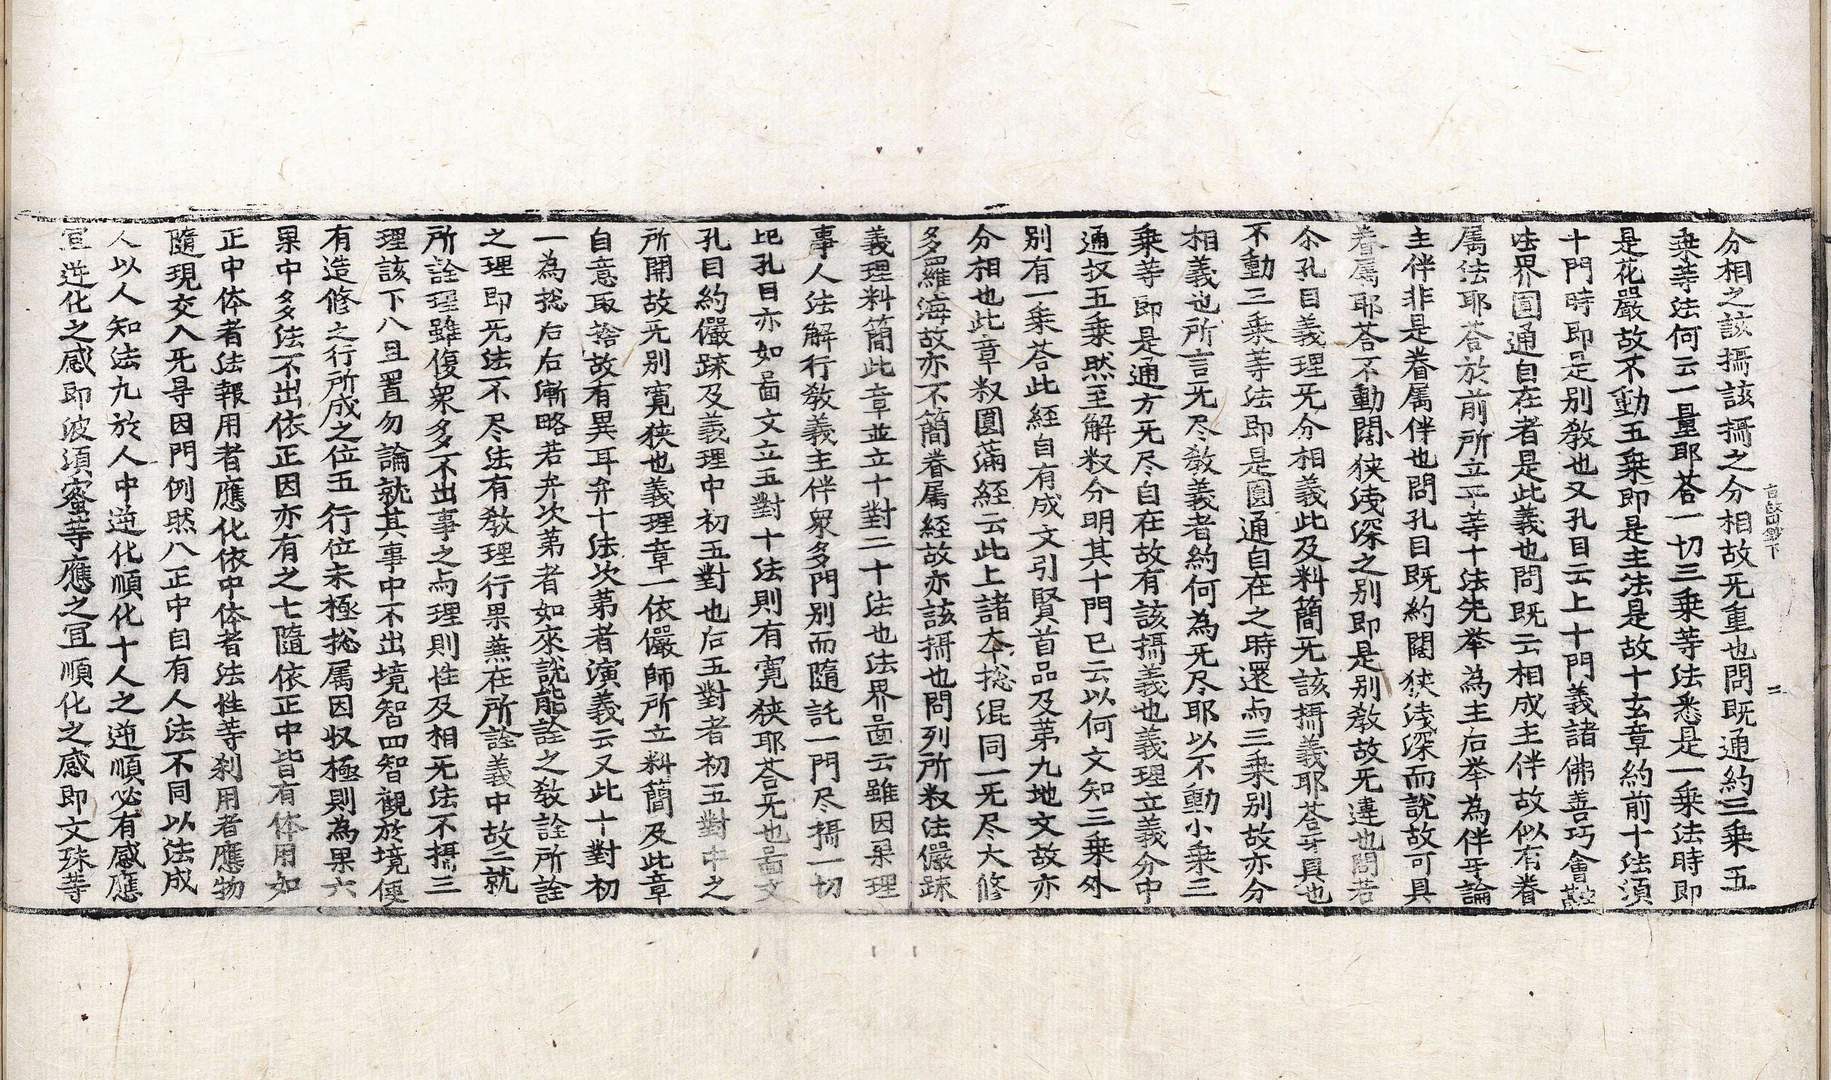 分相之該攝該攝之分相故无重也問既通約三乘五
乘等法何云一量耶荅一切三乘等法悉是一乘法時即
是花嚴故不動五乘即是主法是故十玄章約前十法須
十門時即是別教也又孔目云上十門義諸佛善巧會
法界圓通自在者是此義也問既云相成主伴故似有眷
属法耶荅於前所立平等十法先举為主后举為伴乎論
主伴非是眷属伴也問孔目既約闊狹浅深而說故可具
眷属耶荅不動闊狹浅深之別即是別教故无違也問若
尒孔目義理无分相義此及料簡无該攝義耶荅乎具也
不動三乘等法即是圓通自在之時還与三乘別故亦分
相義也所言无尽教義者約何為无尽耶以不動小乘三
乘等即是通方无尽自在故有該攝義也義理立義分中
通收五乘然至解釈分明其十門已云以何文知三乘外
別有一乘荅此經自有成文引賢首品及第九地文故亦
分相也此章叙圓滿經云此上諸夲捴混同一无尽大修
多羅海故亦不簡眷属經故亦該攝也問列所叙法儼踈
義理料簡此章並立十對二十法也法界啚云雖因果理
事人法解行教義主伴衆多門別而隨託一門尽攝一切
孔目亦如啚文立五對十法則有寛狹耶荅无也啚文
孔目約儼踈及義理中初五對也后五對者初五對中之
所開故无別寛狹也義理章一依儼師所立料簡及此章
自意取捨故有異耳弁十法次第者演義云又此十對初
一為捴后后漸略若弁次第者如來說能詮之教詮所詮
之理即无法不尽法有教理行果蕪在所詮義中故二就
所詮理雖復衆多不出事之与理則性及相无法不攝三
理該下八且置勿論就其事中不出境智四智觀於境便
有造修之行所成之位五行位未極捴属因收極則為果六
果中多法不出依正因亦有之七隨依正中皆有体用如
正中体者法報用者應化依中体者法性等刹用者應物
隨現交入无导因門例然八正中自有人法不同以法成
人以人知法九於人中逆化順化十人之逆順必有感應
冝逆化之感即波須蜜等應之冝順化之感即文殊等